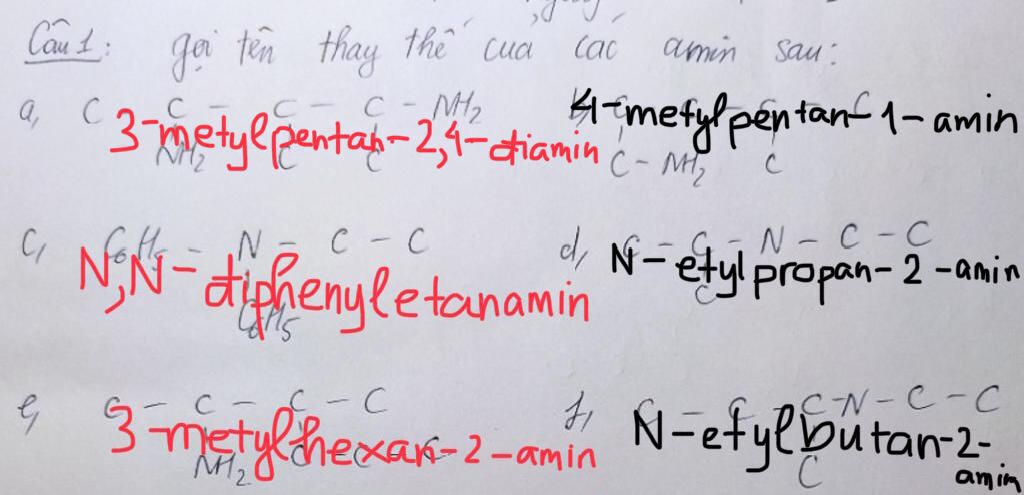 Câu 1: gọi tên thay thế của các amin sau:
a, C C - C - C - NH2
3-metylpentan-2,4-diamin
NH2 C C
4-metylpentan-1-amin
C - NH2 C
c, C6H5 - N - C - C
N,N-diphenyletanamin
C6H5
d, C - C - N - C - C
N-etylpropan-2-amin
C
e, C - C - C - C
3-metylhexan-2-amin
NH2
f, C - C - C - N - C - C
N-etylbutan-2-
amin
C